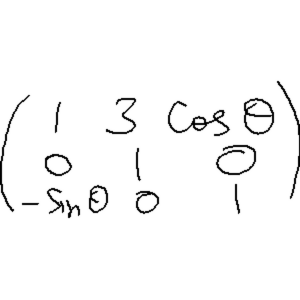 1 3 Cos θ
0 1 0
-Sin θ 0 1